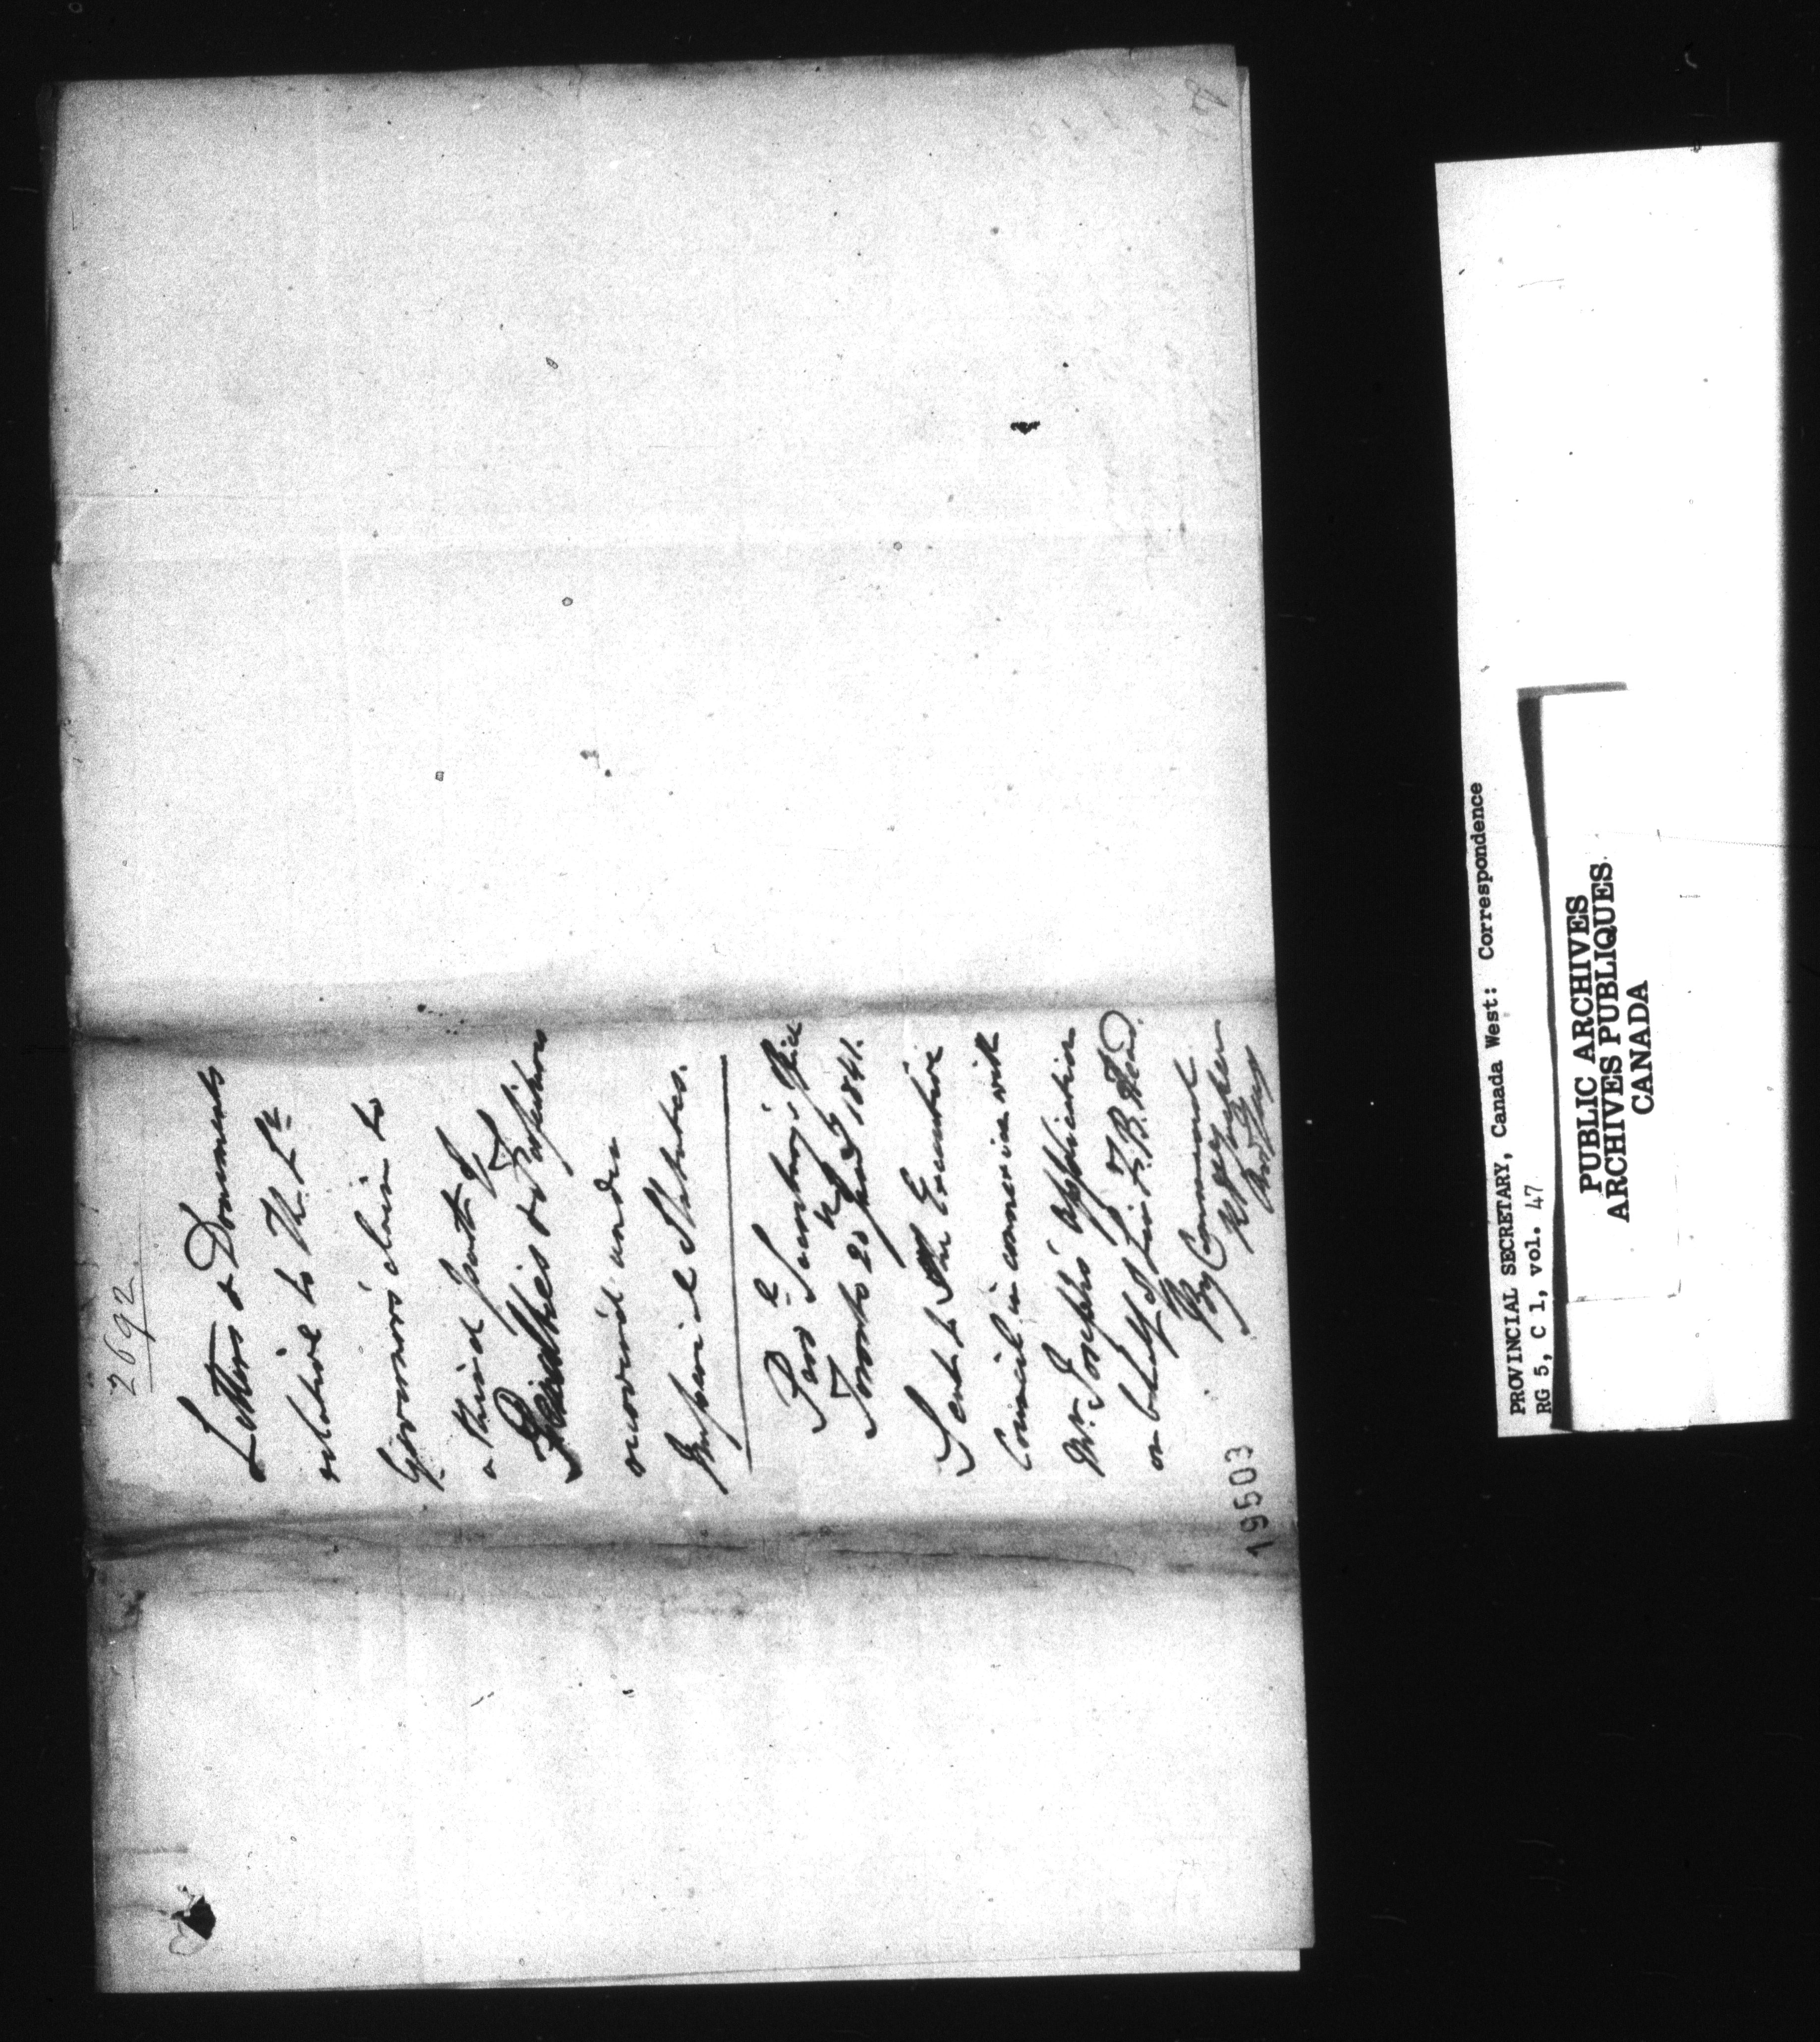 2692.
Letters & Documents
relative to The Lt
Governor's claim to
a third part of
Penalties & Forfeitures
recovered under
Imperial Statutes.
Secretary's Office
Toronto 20th 1841.
Sent to The Executive
Council in connexion with
Mr. Joseph's application
on behalf of Sir F. B. Head.
By Command
19503
PROVINCIAL SECRETARY, Canada West: Correspondence
RG 5, C 1, vol. 47
PUBLIC ARCHIVES
ARCHIVES PUBLIQUES
CANADA